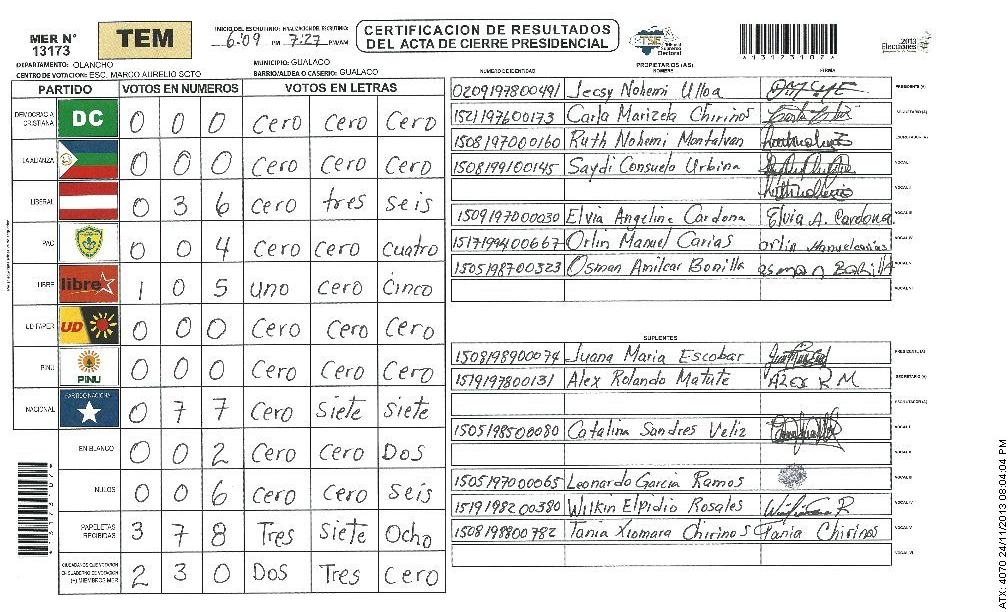 MER N° 13173
TEM
INICIO DEL ESCRUTINIO: FINALIZACION DEL ESCRUTINIO:
6:09 PM 7:27 PM/AM
CERTIFICACION DE RESULTADOS
DEL ACTA DE CIERRE PRESIDENCIAL
TSE Tribunal Supremo Electoral
*13173107*
2013 Elecciones
DEPARTAMENTO: OLANCHO
MUNICIPIO: GUALACO
CENTRO DE VOTACION: ESC. MARCO AURELIO SOTO
BARRIO/ALDEA O CASERIO: GUALACO
PARTIDO VOTOS EN NUMEROS VOTOS EN LETRAS
DEMOCRACIA CRISTIANA DC 0 0 0 Cero Cero Cero
LA ALIANZA 0 0 0 Cero Cero Cero
LIBERAL 0 3 6 Cero tres seis
PAC 0 0 4 Cero Cero Cuatro
LIBRE libre 1 0 5 Uno Cero Cinco
UD FAPER UD 0 0 0 Cero Cero Cero
PINU PINU 0 0 0 Cero Cero Cero
NACIONAL PARTIDO NACIONAL 0 7 7 Cero Siete Siete
EN BLANCO 0 0 2 Cero Cero Dos
NULOS 0 0 6 Cero Cero Seis
PAPELETAS RECIBIDAS 3 7 8 Tres Siete Ocho
CIUDADANOS QUE VOTARON EN CUADERNO DE VOTACION (+) MIEMBROS MER 2 3 0 Dos Tres Cero
PROPIETARIOS (AS)
NUMERO DE IDENTIDAD NOMBRE FIRMA
0209197800491 Jecsy Nohemi Ulloa PRESIDENTE (A)
1521197600173 Carla Marizela Chirinos SECRETARIO (A)
1508197000160 Ruth Nohemi Montalvan ESCRUTADOR (A)
1508199100145 Saydi Consuelo Urbina VOCAL I
VOCAL II
1509197000030 Elvia Angelina Cardona Elvia A. Cardona VOCAL III
1517199400667 Orlin Manuel Carias orlin Manuel carias VOCAL IV
1505198700323 Osman Amilcar Bonilla osman Bonilla VOCAL V
VOCAL VI
SUPLENTES
1508198900074 Juana Maria Escobar PRESIDENTE (A)
1519197800131 Alex Rolando Matute Alex R M SECRETARIO (A)
ESCRUTADOR (A)
1505198500080 Catalina Sandres Veliz VOCAL I
VOCAL II
1505197000065 Leonardo Garcia Ramos VOCAL III
1519198200380 Wilkin Elpidio Rosales VOCAL IV
1508198800782 Tania Xiomara Chirinos Tania Chirinos VOCAL V
VOCAL VI
ATX: 4070 24/11/2013 08:04:04 PM